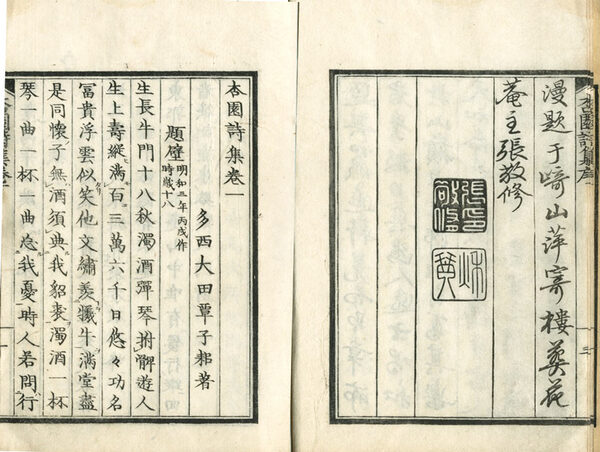 杏園詩集序
漫題于崎山萍寄樓葵花
菴主張敬修
張印敬修
杏園詩集卷一
多西大田覃子耜著
題壁 明和三年丙戌作
時歲十八
生長牛門十八秋濁酒彈琴拊髀遊人
生上壽縱滿百三萬六千日悠々功名
冨貴浮雲似笑他文繡羨犧牛滿堂盡
是同懷子無酒須典我貂裘濁酒一杯
琴一曲一杯一曲忘我憂時人若問行
杏園詩集卷一